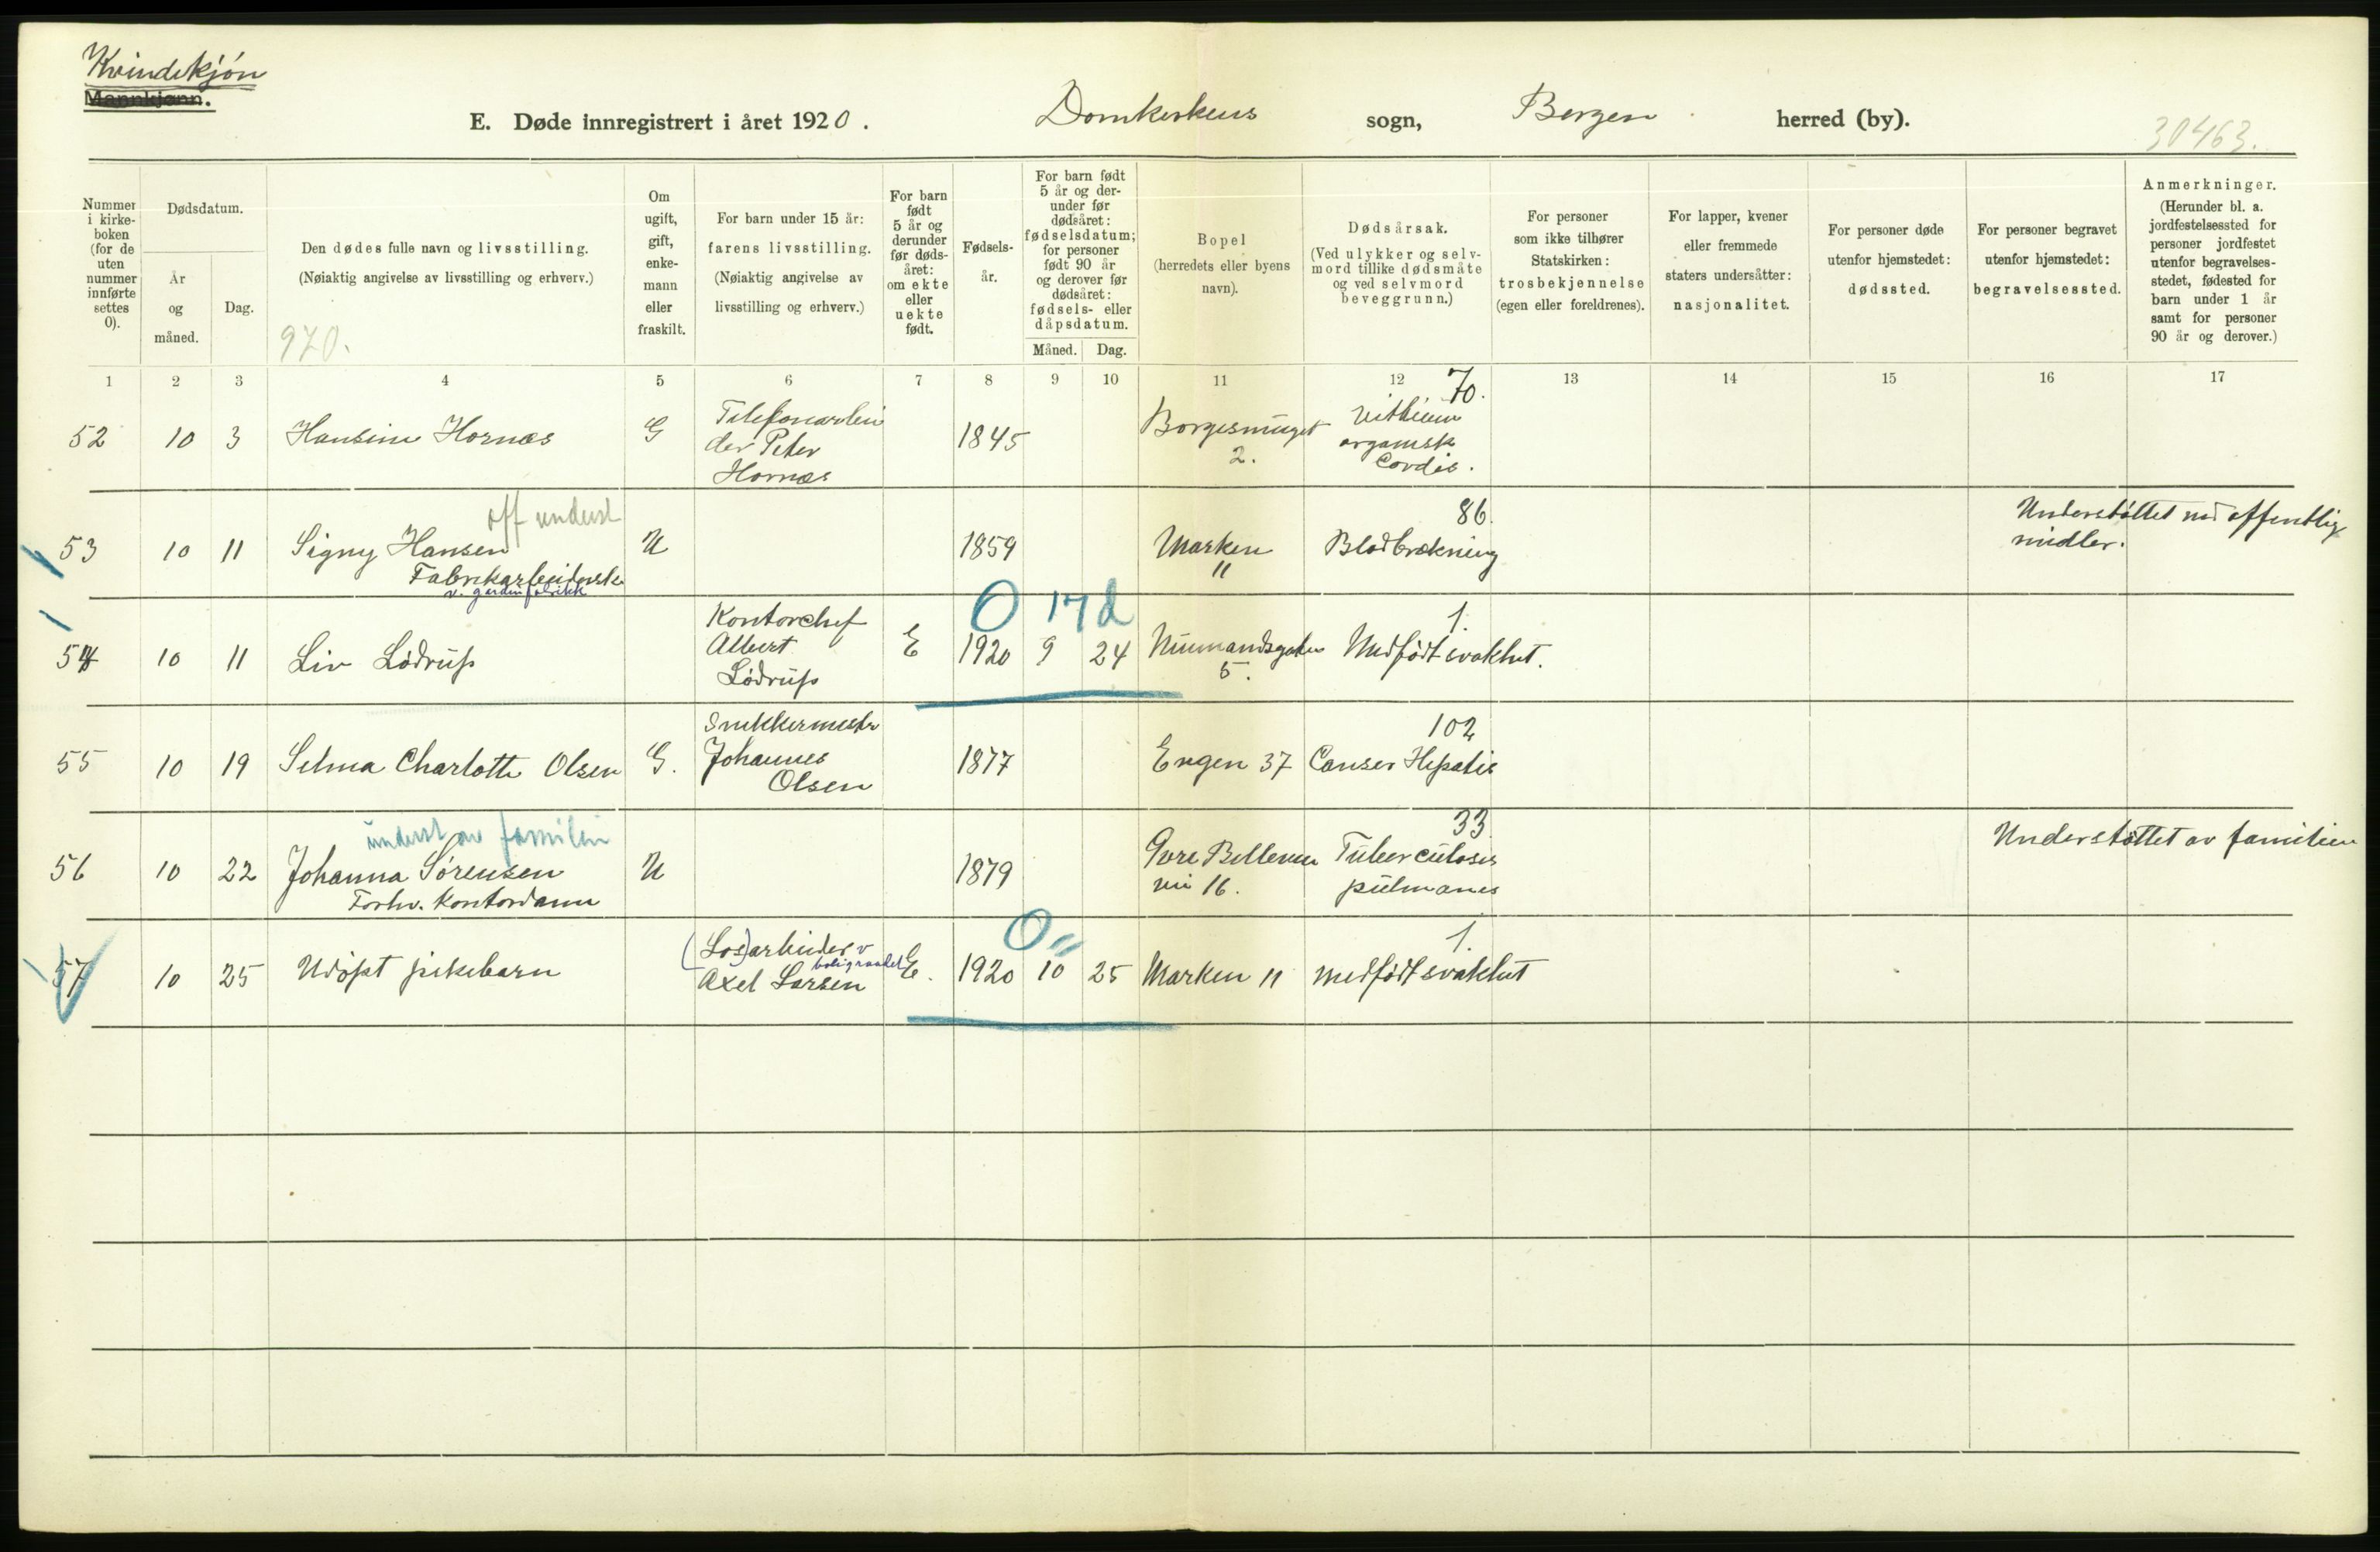 Kvindekjøn
Mannkjønn.
E. Døde innregistrert i året 1920. Domkirkens sogn, Bergen herred (by).
30463.
Nummer i kirke-boken (for de uten nummer innførte settes 0).
Dødsdatum.
År og måned.
Dag.
Den dødes fulle navn og livsstilling.
(Nøiaktig angivelse av livsstilling og erhverv.)
970.
Om ugift, gift, enke-mann eller fraskilt.
For barn under 15 år: farens livsstilling.
(Nøiaktig angivelse av livsstilling og erhverv.)
For barn født 5 år og derunder før døds-året: om ekte eller uekte født.
Fødsels-år.
For barn født 5 år og der-under før dødsåret: fødselsdatum; for personer født 90 år og derover før dødsåret: fødsels- eller dåpsdatum.
Måned. Dag.
Bopel
(herredets eller byens navn).
Dødsårsak.
(Ved ulykker og selv-mord tillike dødsmåte og ved selvmord beveggrunn.)
For personer som ikke tilhører Statskirken: trosbekjennelse (egen eller foreldrenes).
For lapper, kvener eller fremmede staters undersåtter: nasjonalitet.
For personer døde utenfor hjemstedet: dødssted.
For personer begravet utenfor hjemstedet: begravelsessted.
Anmerkninger.
(Herunder bl. a. jordfestelsessted for personer jordfestet utenfor begravelses-stedet, fødested for barn under 1 år samt for personer 90 år og derover.)
1 2 3 4 5 6 7 8 9 10 11 12 13 14 15 16 17
70.
52 10 3 Hansine Hornæs G Telefonarbei
der Peter
Hornæs
1845 Borgesmuget
2.
Vitium
organisk
Cordis.
off underst
86.
53 10 11 Signy Hansen U 1859 Marken
11
Blodbrækning
Fabrikarbeiderske
v. gardinfabrikk
Understøttet med offentlig
midler.
0 17 d
1.
54 10 11 Liv Lødrup Kontorchef
Albert
Lødrup
E 1920 9 24 Numandsgaten
5.
Medfødt svakhet.
102
55 10 19 Selma Charlotte Olsen G. Snekkermester
Johannes
Olsen
1877 Engen 37 Canser Hepatis
underst av familien
33.
56 10 22 Johanna Sørensen U 1879 Øvre Blekevei
16.
Tuberculosis
pulmones
Forhv. Kontordame
Understøttet av familien
0 "
1.
57 10 25 Udøpt pikebarn (Løs)arbeider v
boligraadet
Axel Larsen
E. 1920 10 25 Marken 11 medfødt svakhet